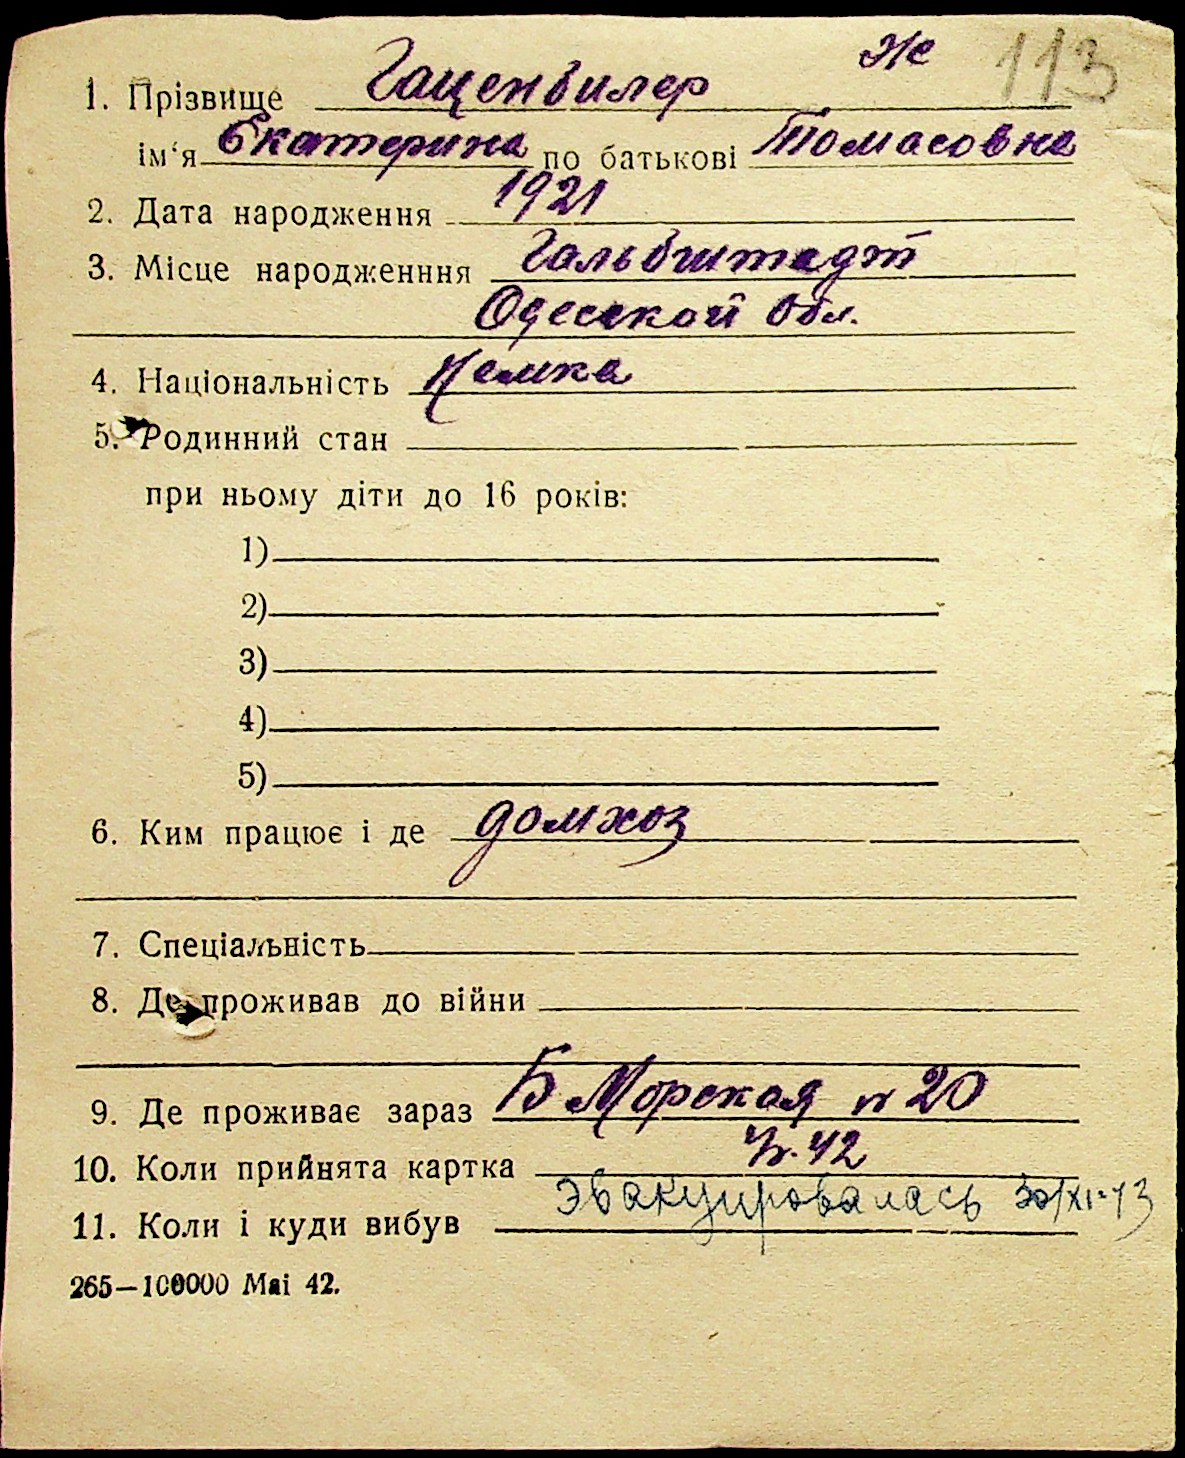 же 113
1. Прізвище Гаценвилер
ім‘я Екатерина по батькові Томасовна
2. Дата народження 1921
3. Місце народженння Гальбштадт
Одесской обл.
4. Національність Немка
5. Родинний стан
при ньому діти до 16 років:
1)
2)
3)
4)
5)
6. Ким працює і де домхоз
7. Спеціальність
8. Де проживав до війни
9. Де проживає зараз Б Морская № 20
10. Коли прийнята картка 42
11. Коли і куди вибув эвакуировалась 30/XI-43
265—100000 Mai 42.